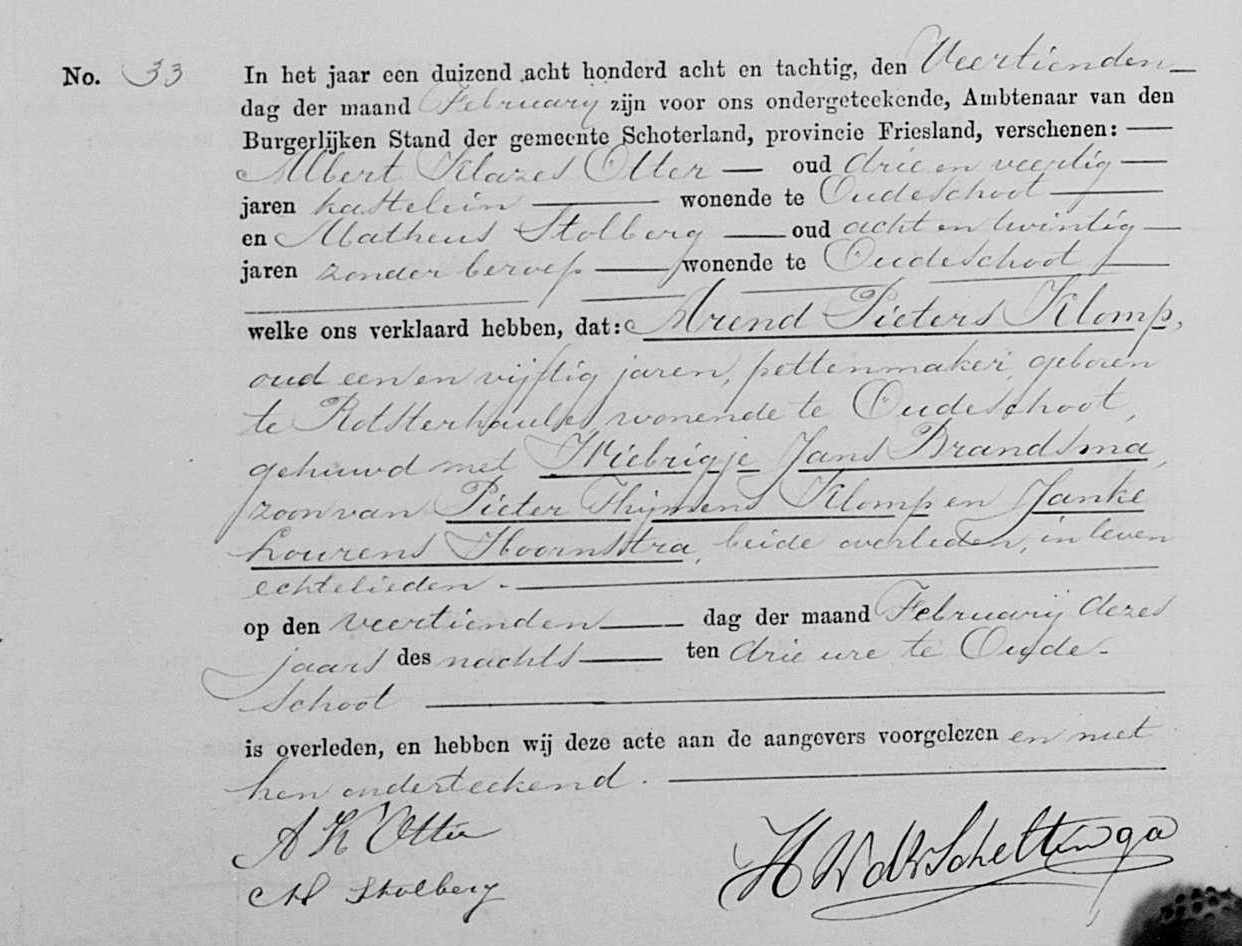 No. 33 In het jaar een duizend acht honderd acht en tachtig, den Veertienden
dag der maand February zijn voor ons ondergeteekende, Ambtenaar van den
Burgerlijken Stand der gemeente Schoterland, provincie Friesland, verschenen:
Albert Klazes Otter oud drie en veertig
jaren kastelein wonende te Oudeschoot
en Matheus Stolberg oud acht en twintig
jaren zonder beroep wonende te Oudeschoot
welke ons verklaard hebben, dat: Arend Pieters Klomp,
oud een en vijftig jaren, pettenmaker, geboren
te Rotsterhaule, wonende te Oudeschoot,
gehuwd met Wiebrigje Jans Brandsma,
zoon van Pieter Thijmens Klomp en Janke
Lourens Hoornstra, beide overleden, in leven
echtelieden.
op den veertienden dag der maand Februarij dezes
jaars des nachts ten drie ure te Oude-
schoot
is overleden, en hebben wij deze acte aan de aangevers voorgelezen en met
hen onderteekend.
A K Otter
M Stolberg